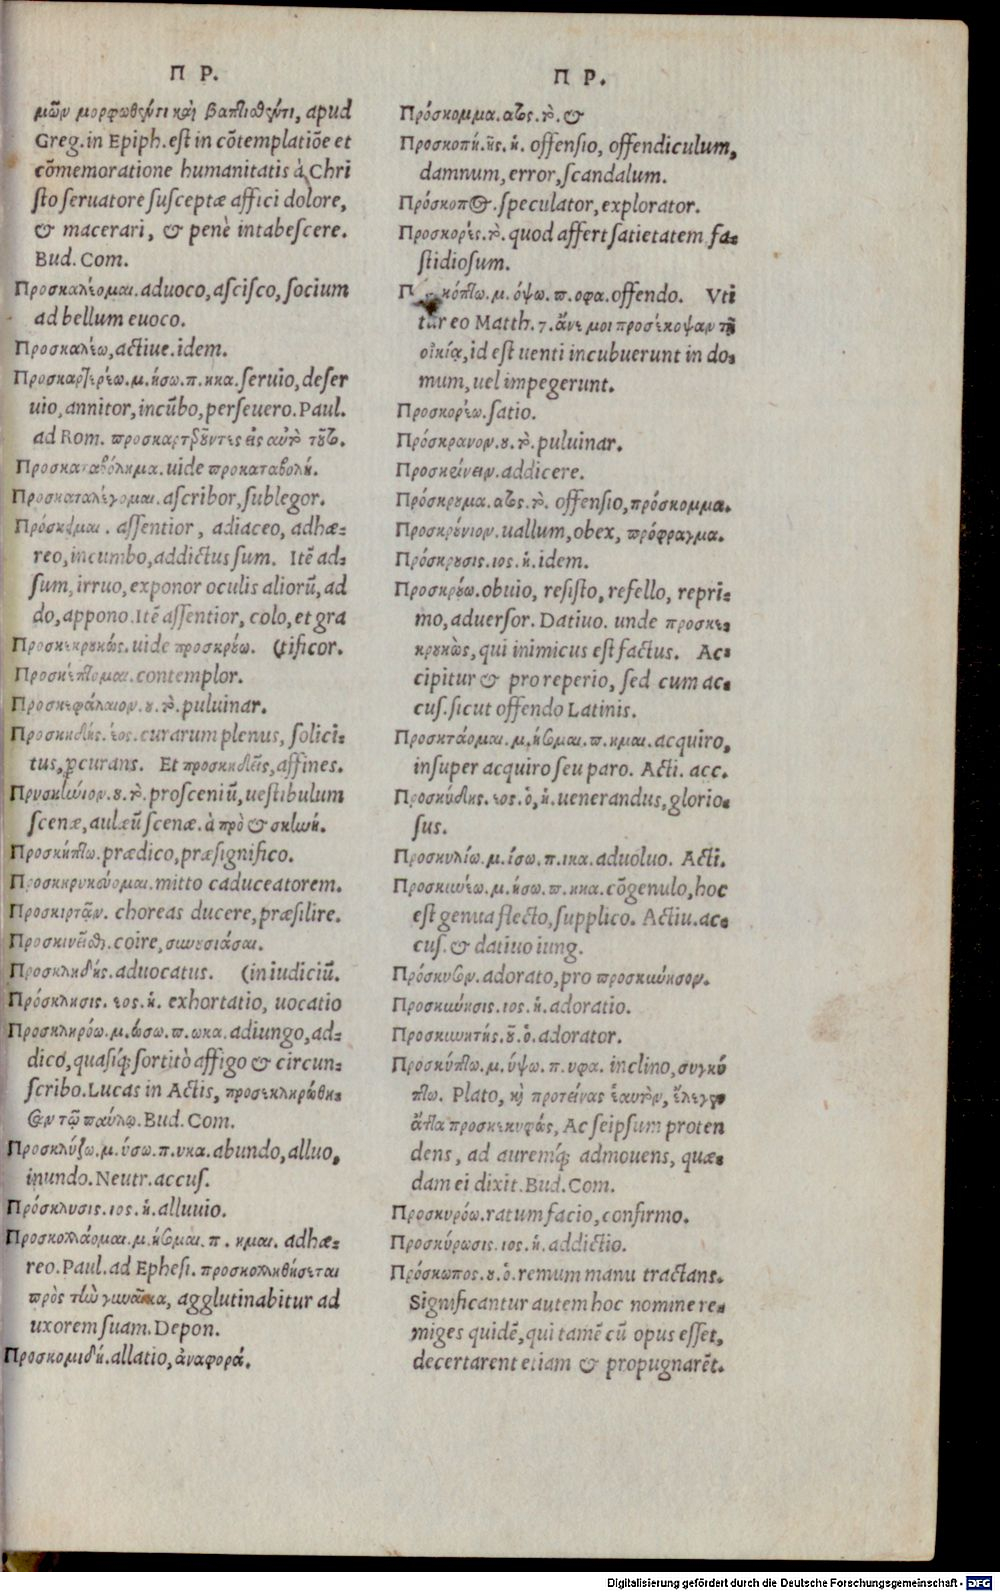 Π Ρ.
μῶν μορφωθέντι καὶ βαπτισθέντι, apud
Greg. in Epiph. est in cõtemplatiõe et
cõmemoratione humanitatis à Chri
sto seruatore susceptæ affici dolore,
& macerari, & penè intabescere.
Bud. Com.
Προσκαλέομαι. aduoco, ascisco, socium
ad bellum euoco.
Προσκαλέω, actiue. idem.
Προσκαρτερέω. μ. ήσω. π. ηκα. seruio, deser
uio, annitor, incũbo, perseuero. Paul.
ad Rom. προσκαρτεροῦντες εἰς αὐτὸ τοῦτο.
Προσκαταβόλημα. uide προκαταβολή.
Προσκαταλέγομαι. ascribor, sublegor.
Πρόσκειμαι. assentior, adiaceo, adhæ-
reo, incumbo, addictus sum. Itẽ ad-
sum, irruo, exponor oculis aliorũ, ad
do, appono. Itẽ assentior, colo, et gra
Προσκεκρουκώς. uide προσκρούω. (tificor.
Προσκέπτομαι. contemplor.
Προσκεφάλαιον. ου. τὸ. puluinar.
Προσκηδής. έος. curarum plenus, solici-
tus, ꝓcurans. Et προσκηδεῖς, affines.
Πρυσκήνιον. ου. τὸ. prosceniũ, uestibulum
scenæ, aulæũ scenæ. à πρὸ & σκηνή.
Προσκήπτω. prædico, præsignifico.
Προσκηρυκεύομαι. mitto caduceatorem.
Προσκιρτᾷν. choreas ducere, præsilire.
Προσκινεῖσθαι. coire, συνουσιάσαι.
Προσκληθείς. aduocatus. (in iudiciũ.
Πρόσκλησις. εος. ἡ. exhortatio, uocatio
Προσκληρόω. μ. ώσω. π. ωκα. adiungo, ad-
dico, quasiq́; sortitò affigo & circun-
scribo. Lucas in Actis, προσεκληρώθη-
σαν τῷ παύλῳ. Bud. Com.
Προσκλύζω. μ. ύσω. π. υκα. abundo, alluo,
inundo. Neutr. accus.
Πρόσκλυσις. ιος. ἡ. alluuio.
Προσκολλάομαι. μ. ήσομαι. π. ημαι. adhæ-
reo. Paul. ad Ephesi. προσκολληθήσεται
πρὸς τὴν γυναῖκα, agglutinabitur ad
uxorem suam. Depon.
Προσκομιδή. allatio, ἀναφορά.
Π Ρ.
Πρόσκομμα. ατος. τὸ. &
Προσκοπή. ῆς. ἡ. offensio, offendiculum,
damnum, error, scandalum.
Πρόσκοπος. speculator, explorator.
Προσκορές. τὸ. quod affert satietatem fa-
stidiosum.
κόπτω. μ. όψω. π. οφα. offendo. Vti
tur eo Matth. 7. ἄνεμοι προσέκοψαν τῇ
οἰκίᾳ, id est uenti incubuerunt in do-
mum, uel impegerunt.
Προσκορέω. satio.
Πρόσκρανον. ου. τὸ. puluinar.
Προσκείνειν. addicere.
Πρόσκρουμα. ατος. τὸ. offensio, πρόσκομμα.
Προσκρούνιον. uallum, obex, πρόφραγμα.
Πρόσκρουσις. ιος. ἡ. idem.
Προσκρούω. obuio, resisto, refello, repri-
mo, aduersor. Datiuo. unde προσκε-
κρουκὼς, qui inimicus est factus. Ac-
cipitur & pro reperio, sed cum ac-
cus. sicut offendo Latinis.
Προσκτάομαι. μ. ήσομαι. π. ημαι. acquiro,
insuper acquiro seu paro. Acti. acc.
Προσκύδης. εος. ὁ, ἡ. uenerandus, glorio-
sus.
Προσκυλίω. μ. ίσω. π. ικα. aduoluo. Acti.
Προσκυνέω. μ. ήσω. π. ηκα. cõgenulo, hoc
est genua flecto, supplico. Actiu. ac-
cus. & datiuo iung.
Πρόσκυσον. adorato, pro προσκύνησον.
Προσκύνησις. ιος. ἡ. adoratio.
Προσκυνητής. οῦ. ὁ. adorator.
Προσκύπτω. μ. ύψω. π. υφα. inclino, συγκύ
πτω. Plato, καὶ προτείνας ἑαυτὸν, ἔλεγεν
ἄττα προσκεκυφώς, Ac seipsum proten
dens, ad auremq́; admouens, quæ-
dam ei dixit. Bud. Com.
Προσκυρόω. ratum facio, confirmo.
Προσκύρωσις. ιος. ἡ. addictio.
Πρόσκωπος. ου. ὁ. remum manu tractans.
Significantur autem hoc nomine re-
miges quidẽ, qui tamẽ cũ opus esset,
decertarent etiam & propugnarẽt.
Digitalisierung gefördert durch die Deutsche Forschungsgemeinschaft - DFG